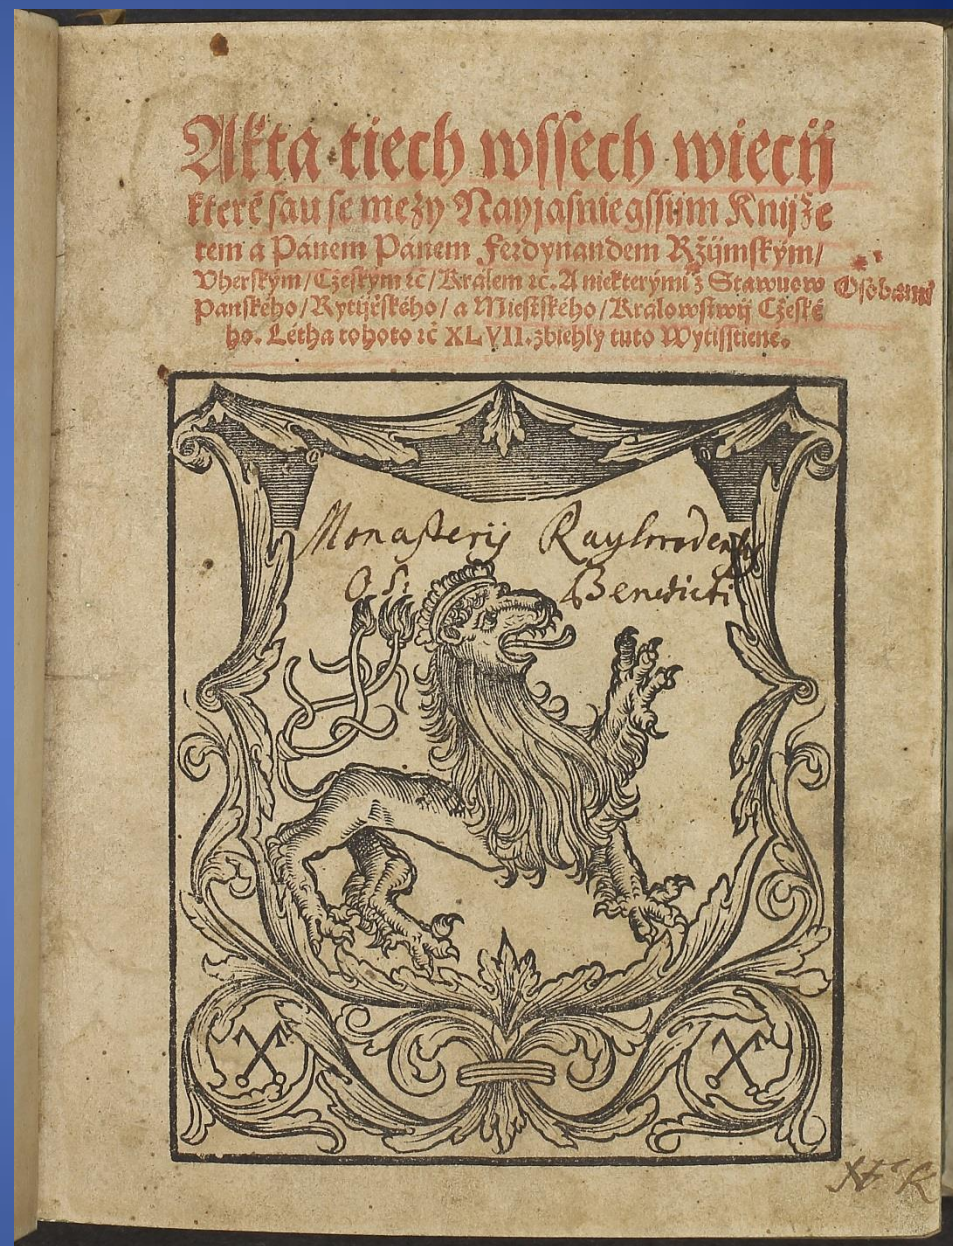 Akta tiech wssech wiecij
kteréž sau se mezy Nayjasniegssijm Knijže
tem a Pánem Pánem Ferdynandem Ržijmským/
Vherským/Cžeským ꝛč/Králem ꝛč. A niekterými z Stawuow Osobami
Panského/Rytijřského/a Miestského/Králowstwij Cžeské
ho. Létha tohoto ꝛč XLVII. zbiehly tuto Wytisstiené.
Monasterij Rayhradensis
O. S: Benedicti